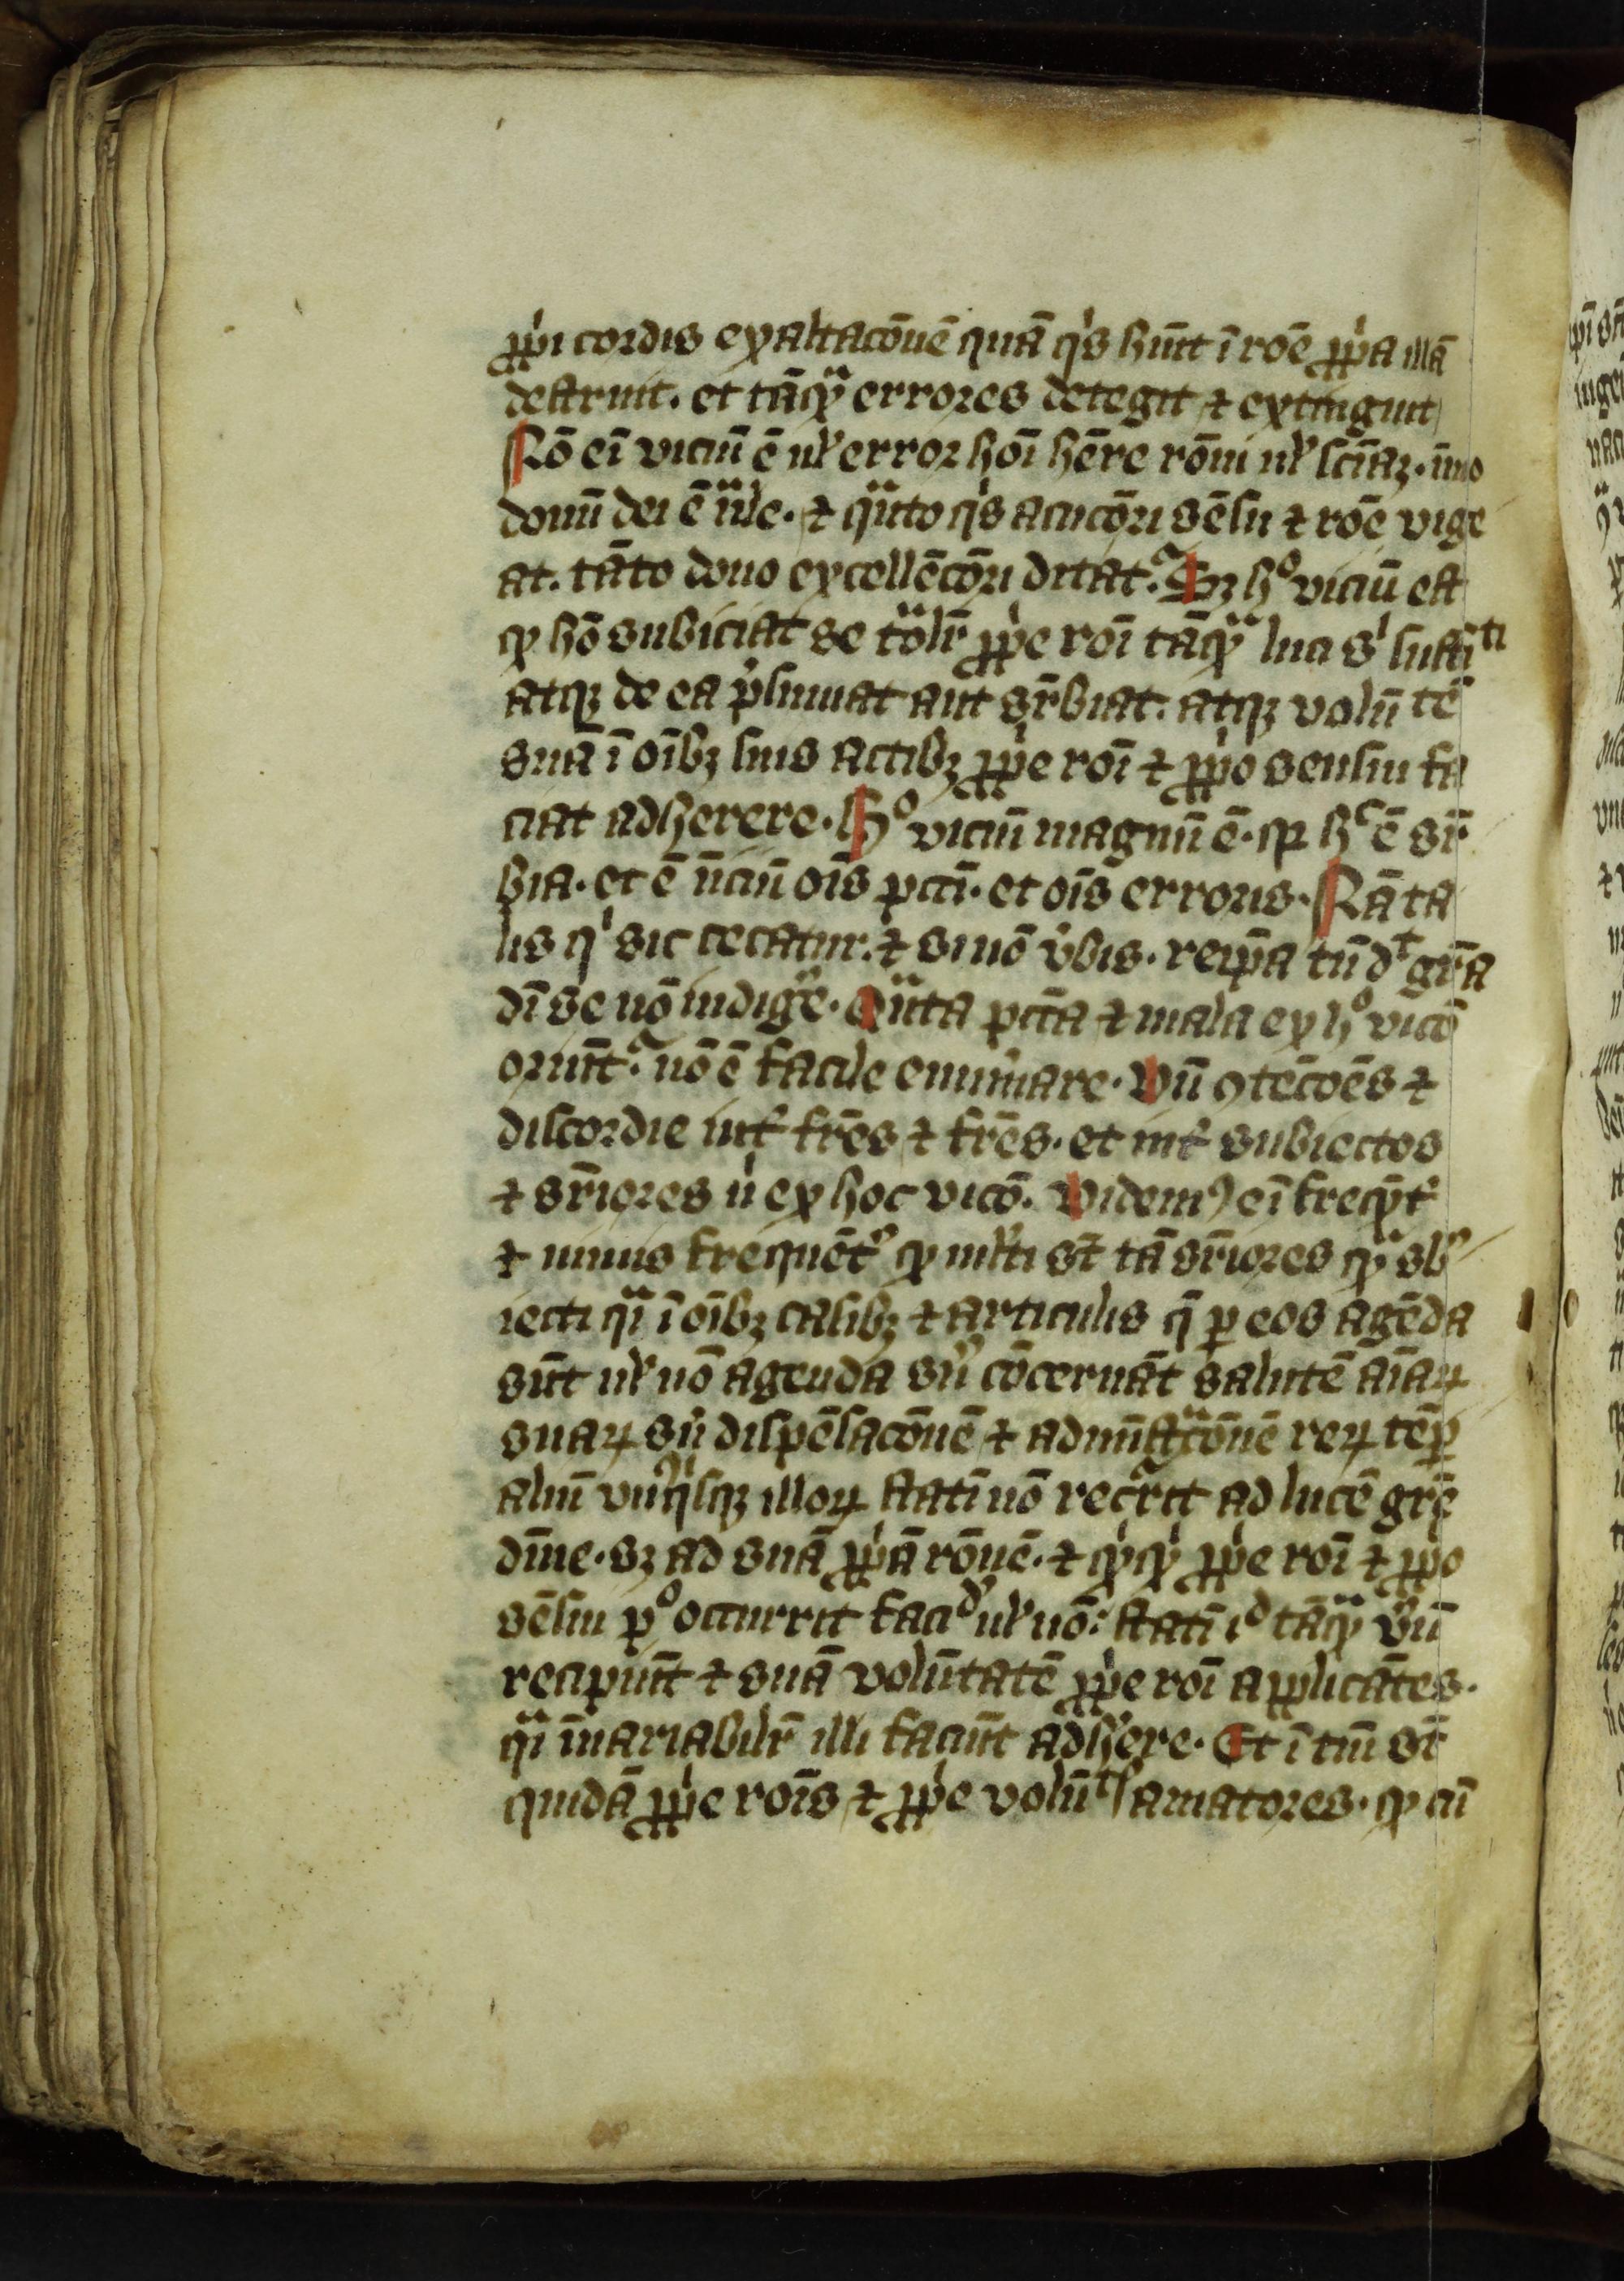 ꝓpͥi cordis exaltacōnē quā qͥs hn̄t ī rōe ꝓpͥa illā
destruit. et tāqͣ errores detegit ⁊ extinguit
Nō eī viciū ē ul̛ error hoī hēre rōm ul̛ sciāꝫ. īmo
donū dei ē ut̛le. ⁊ qͣnto qͥs acucōri sēsu ⁊ rōe vige
at. tāto dono excellēcōri ditat᷑. Sꝫ hͦ viciū est
ꝙ hō subiciat se tͣol̛r ꝓpͥe roī tāqͣ luci sͥ sufficiēti
atqꝫ de ea p̛sumat aut sr̄biat. atqꝫ volūtē
suā ī oībꝫ suis actibꝫ ꝓpͥe roī ⁊ ꝓpͥo sensui fa
ciat adherere. Hͦ viciū magnū ē. qꝛ hͨ ē sr̄
bia. et ē īiciū oīs pcti. et oīs erroris. Nā ta
lis qͥ sic cecatur. ⁊ si nō v̛bis. reip̄a tn̄ dͭ gr̄a
dī se nō indig̛e. Qͣnta pctā ⁊ mala ex hͦ vicō
oriūt᷑. nō ē facile enum̛are. Vn̄ ꝯtēcōēs ⁊
discordie int̛ fr̄es ⁊ fr̄es. et int̛ subiectos
⁊ sr̄iores ..... ex hoc vicō. Videmꝰ eī frequēt̛
⁊ nimis frequēt̛ ꝙ ml̛ti st̄ tā sr̄iores qͣ sb̛
iecti qͥ ī oībꝫ casibꝫ ⁊ articulis q̄ ꝑ eos agēda
sūt ul̛ nō agenda siͮ cōcernāt salutē aīaꝝ
suaꝝ siͮ dispēsacōnē ⁊ admīstͣcōnē reꝝ tēꝑ
aliū vnꝰqͥsqꝫ illoꝝ statī nō rec̛rit ad lucē grē
dīne. sꝫ ad suā ꝓpͥā rōnē. ⁊ qͥcqͥd ꝓpͥe roī ⁊ ꝓpͥo
sēsui pͦ occurrit faciͩ ul̛ nō: statī iͩ tāqͣ v̛ū
recipiūt ⁊ suā volūtatē ꝓpͥe roī applicātes.
qͣi īvariabil̛r illi faciūt adh̛ere. Et ī tm̄ st̄
quidā ꝓpͥe roīs ⁊ ꝓpͥe volūtͭis amatores. ꝙ cū